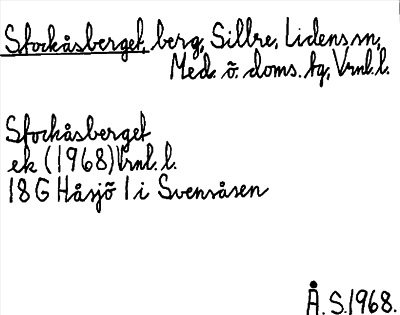 Stockåsberget, berg, Sillre, Lidens sn,
Med. ö. doms. tg, Vrnl. l.
Stockåsberget
ek (1968) Vrnl. l.
18 G Håsjö 1 i Svensåsen
Å. S. 1968.